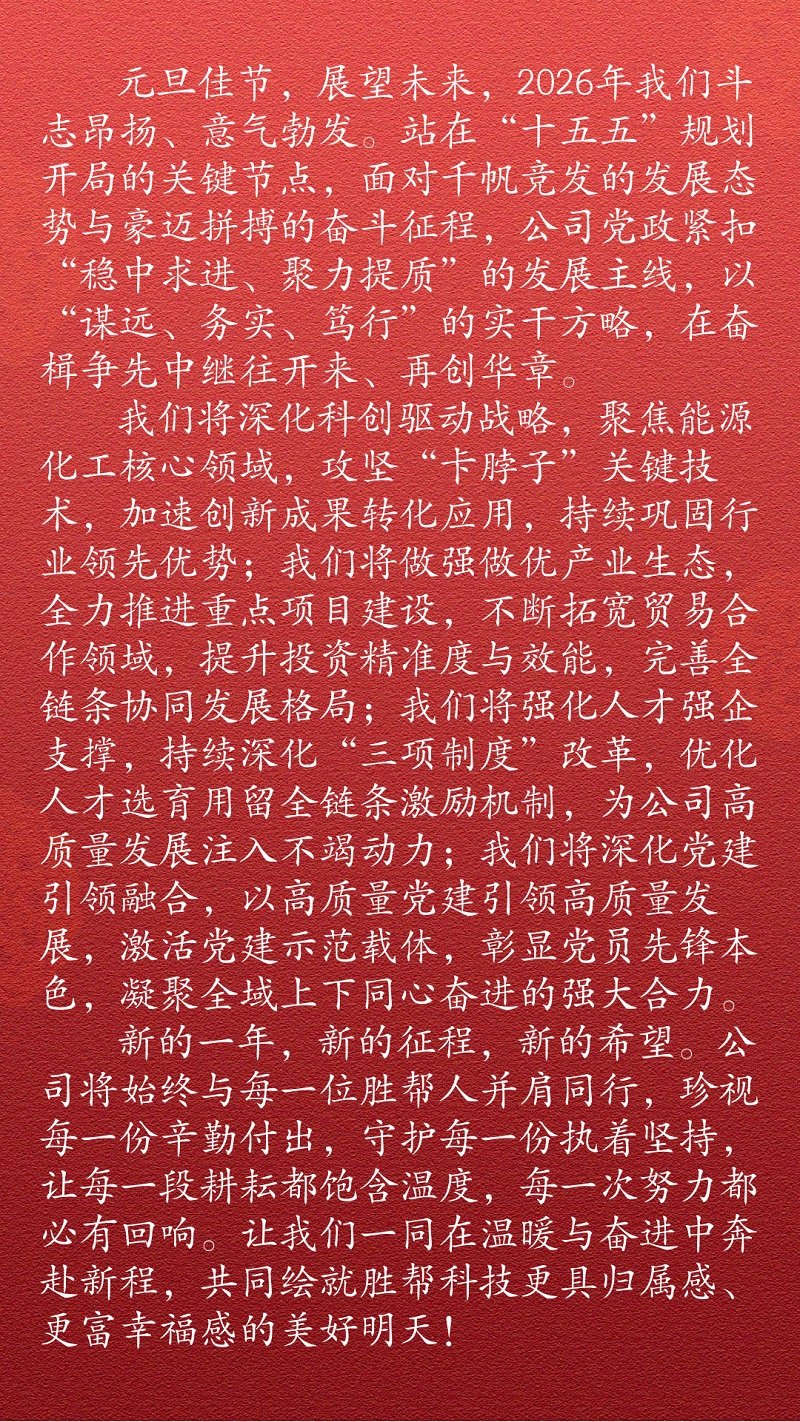 元旦佳节，展望未来，2026年我们斗
志昂扬、意气勃发。站在“十五五”规划
开局的关键节点，面对千帆竞发的发展态
势与豪迈拼搏的奋斗征程，公司党政紧扣
“稳中求进、聚力提质”的发展主线，以
“谋远、务实、笃行”的实干方略，在奋
楫争先中继往开来、再创华章。
我们将深化科创驱动战略，聚焦能源
化工核心领域，攻坚“卡脖子”关键技
术，加速创新成果转化应用，持续巩固行
业领先优势；我们将做强做优产业生态，
全力推进重点项目建设，不断拓宽贸易合
作领域，提升投资精准度与效能，完善全
链条协同发展格局；我们将强化人才强企
支撑，持续深化“三项制度”改革，优化
人才选育用留全链条激励机制，为公司高
质量发展注入不竭动力；我们将深化党建
引领融合，以高质量党建引领高质量发
展，激活党建示范载体，彰显党员先锋本
色，凝聚全域上下同心奋进的强大合力。
新的一年，新的征程，新的希望。公
司将始终与每一位胜帮人并肩同行，珍视
每一份辛勤付出，守护每一份执着坚持，
让每一段耕耘都饱含温度，每一次努力都
必有回响。让我们一同在温暖与奋进中奔
赴新程，共同绘就胜帮科技更具归属感、
更富幸福感的美好明天！